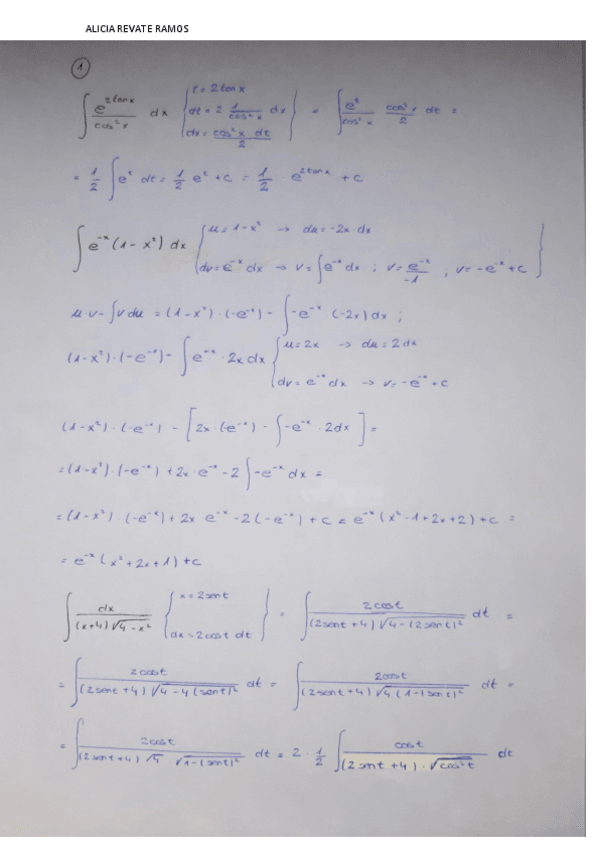 ALICIA REVATE RAMOS
1
∫ e^(2tanx)/cos²x dx { t = 2tanx ; dt = 2 1/cos²x dx ; dx = cos²x dt/2 } = ∫ e^t/cos²x cos²x/2 dt =
= 1/2 ∫ e^t dt = 1/2 e^t + c = 1/2 e^(2tanx) + c
∫ e^-x (1-x²) dx { u = 1-x² → du = -2x·dx
dv = e^-x dx → v = ∫ e^-x dx ; v = e^-x/-1 , v = -e^-x + c }
u·v - ∫ v du = (1-x²)·(-e^-x) - ∫ -e^-x·(-2x) dx ;
(1-x²)·(-e^-x) - ∫ e^-x·2x dx { u = 2x → du = 2dx
dv = e^-x dx → v = -e^-x + c
(1-x²)·(-e^-x) - [2x·(-e^-x) - ∫ -e^-x·2dx] =
= (1-x²)·(-e^-x) + 2x·e^-x - 2 ∫ -e^-x dx =
= (1-x²)·(-e^-x) + 2x e^-x - 2(-e^-x) + c = e^-x (x²-1+2x+2) + c =
= e^-x (x²+2x+1) + c
∫ dx/((x+4)√(4-x²)) { x = 2sent ; dx = 2cost dt } = ∫ 2cost/((2sent+4)√(4-(2sent)²)) dt =
= ∫ 2cost/((2sent+4)√(4-4(sent)²)) dt = ∫ 2cost/((2sent+4)√(4(1-(sent)²)) dt =
= ∫ 2cost/((2sent+4)√4 √(1-(sent)²)) dt = 2·1/2 ∫ cost/((2sent+4)·√(cos²t)) dt